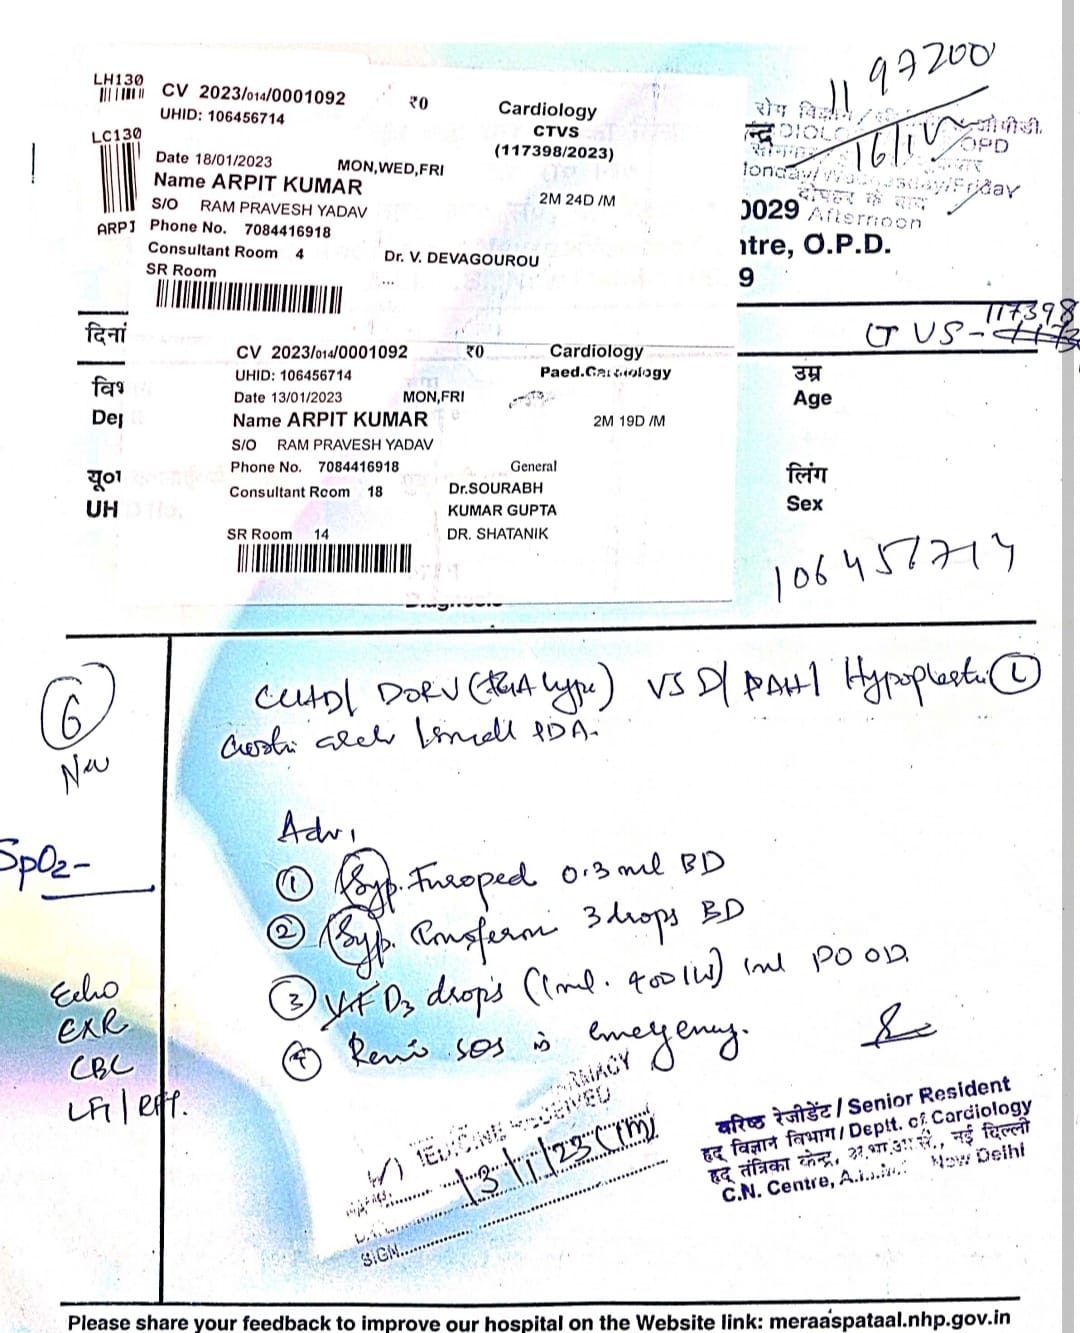 11 97200
LH130
CV 2023/014/0001092 ₹0
UHID: 106456714
Cardiology
CTVS
(117398/2023)
LC130
Date 18/01/2023 MON,WED,FRI
Name ARPIT KUMAR
2M 24D /M
S/O RAM PRAVESH YADAV
ARPI
Phone No. 7084416918
Consultant Room 4 Dr. V. DEVAGOUROU
SR Room
रोग
OPD
Afternoon
0029
ntre, O.P.D.
9
117398
CTVS-
दिनां
CV 2023/014/0001092 ₹0 Cardiology
UHID: 106456714 Paed.Cardiology
Date 13/01/2023 MON,FRI
Name ARPIT KUMAR
2M 19D /M
S/O RAM PRAVESH YADAV
Phone No. 7084416918 General
Consultant Room 18 Dr.SOURABH
KUMAR GUPTA
SR Room 14 DR. SHATANIK
वि
Dep
उम्र
Age
यू०
UH
लिंग
Sex
106457714
6
New
DORV (TGA type) VSD/ PAH/ Hypoplastic L
arch / small PDA.
SpO2-
Adv,
① Syp. Furoped 0.3 ml BD
② Syp. 3 drops BD
③ Vit D3 drops (1ml. 400 IU) 1ml PO OD.
④ SOS in emergency.
Echo
CXR
CBC
PHARMACY
MEDICINE RECEIVED
13/1/23
SIGN
वरिष्ठ रेजीडेंट / Senior Resident
हृद् विज्ञान विभाग / Deptt. of Cardiology
हृद् तंत्रिका केन्द्र, अ.भा.आ.सं., नई दिल्ली
C.N. Centre, New Delhi
Please share your feedback to improve our hospital on the Website link: meraaspataal.nhp.gov.in